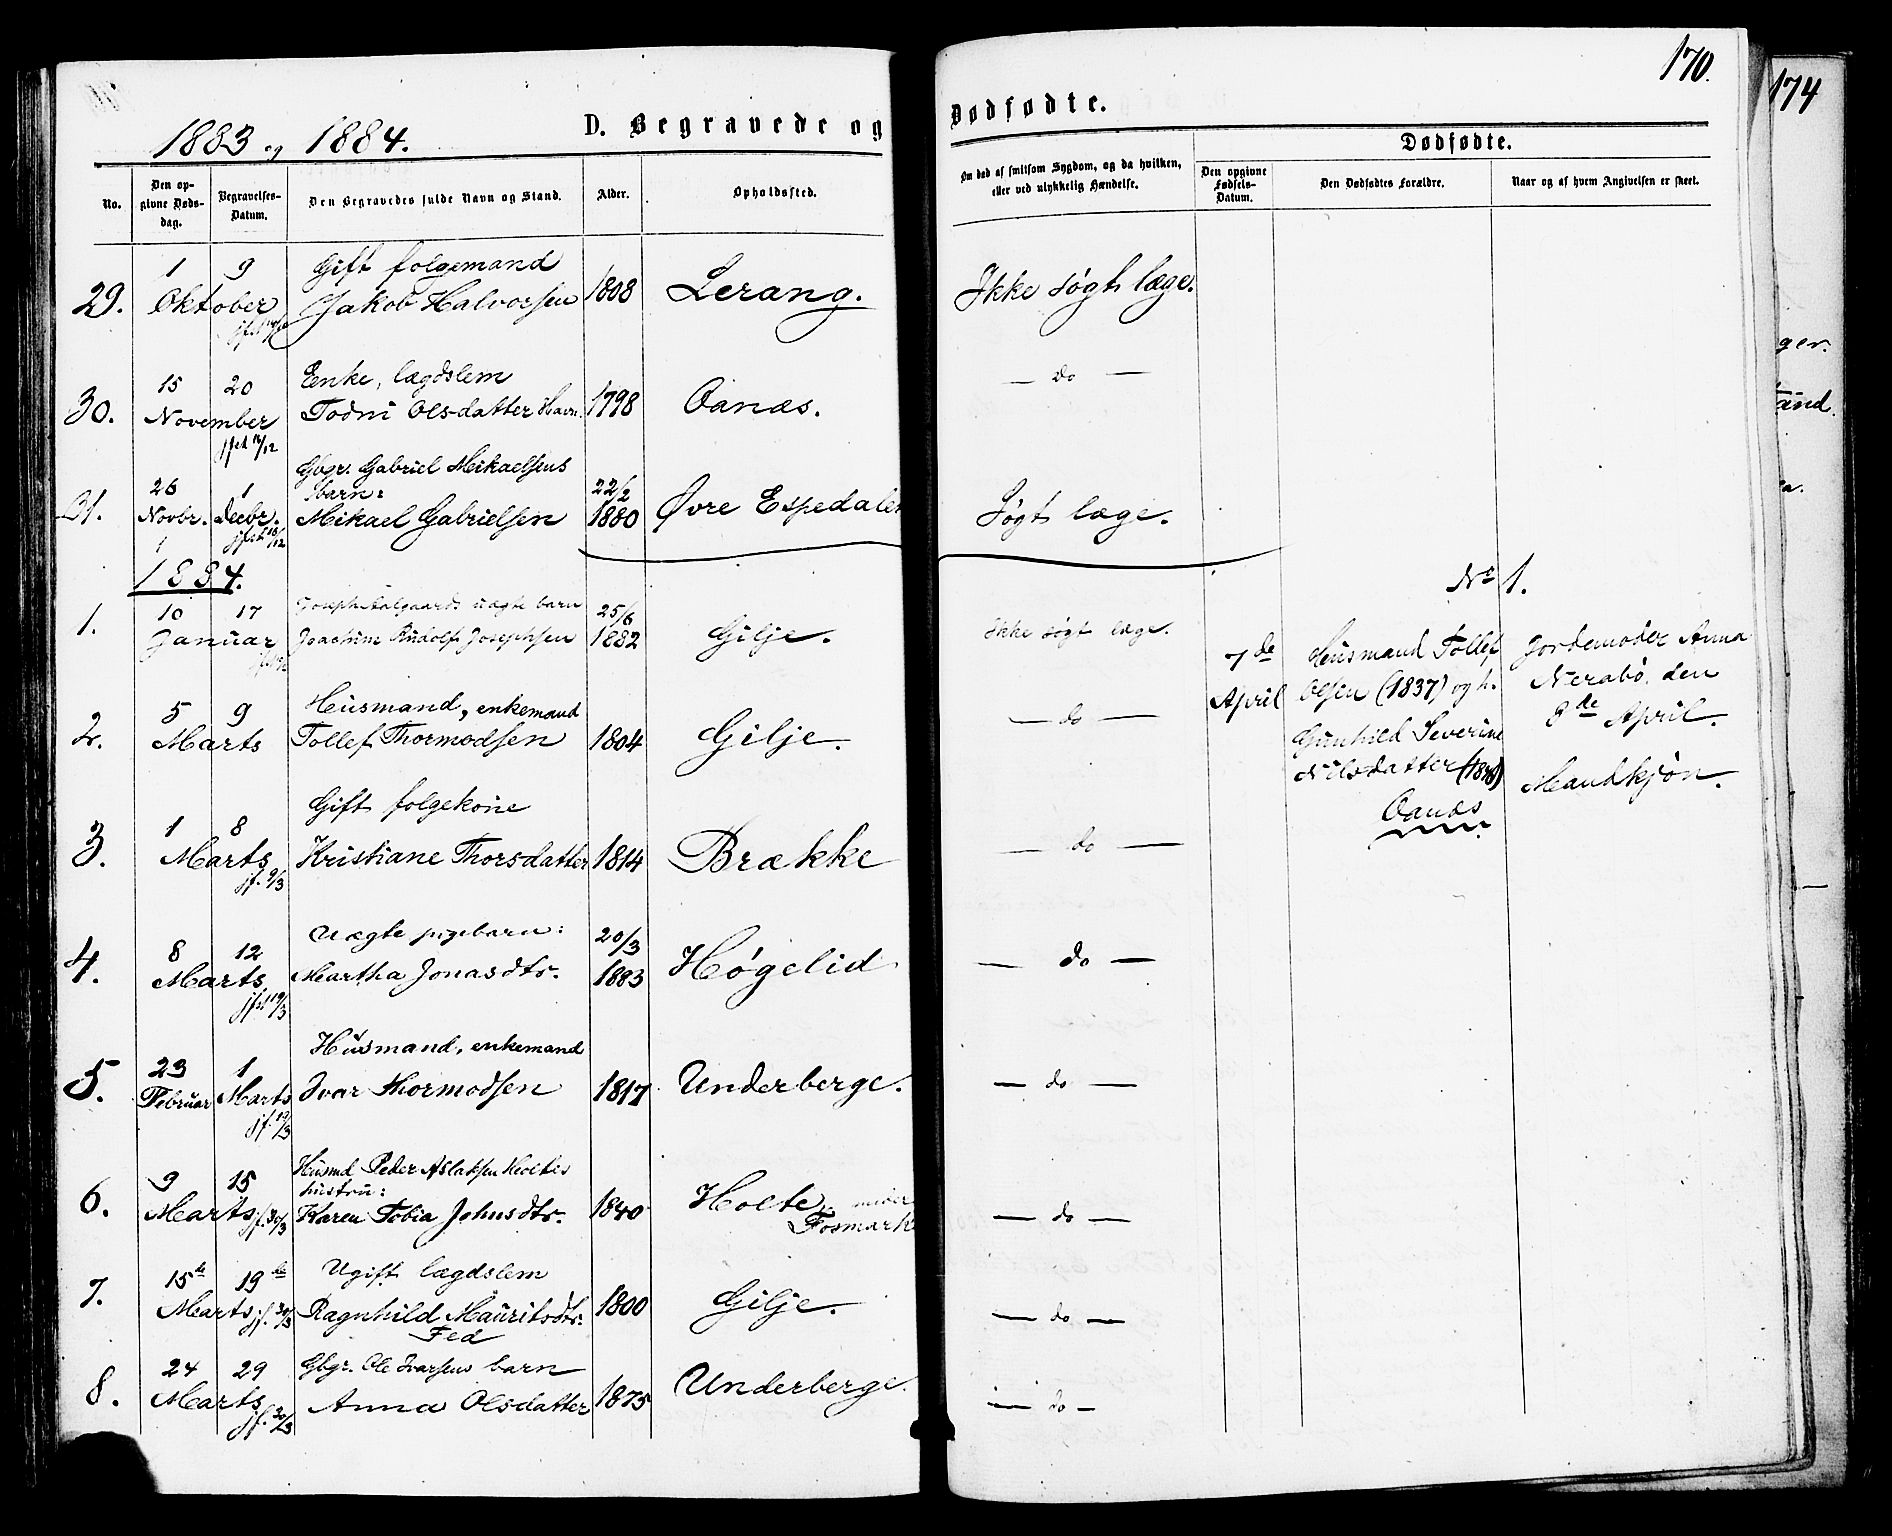 170.
174
1883 og 1884.
D. Begravede og Dødfødte.
No.
Den opgivne Dødsdag.
Begravelses-Datum.
Den Begravedes fulde Navn og Stand.
Alder.
Opholdssted.
Om død af smitsom Sygdom, og da hvilken, eller ved ulykkelig Hændelse.
Dødfødte.
Den opgivne Fødsels-Datum.
Den Dødfødtes Forældre.
Naar og af hvem Angivelsen er skeet.
1 9 Gift folgemand
29. Oktober Jakob Halvorsen 1808 Lerang. Ikke søgt læge.
15 20 Enke, lægdslem
30. November Todni Olsdatter Havn. 1798 Oanæs. — do —
jfst 16/12
Gbgr. Gabriel Mikaelsens
26 1 barn: 22/2
31. Novbr. Decbr. Mikael Gabrielsen 1880 Øvre Espedalen Søgt læge.
jfst 16/12
1884.
10 17 uægte barn 25/6
1. Januar Joachim Rudolf Josephsen 1882 Gilje. Ikke søgt læge.
5 9 Husmand, enkemand
2. Marts Tollef Thormodsen 1804 Gilje. — do —
1 8 Gift folgekone
3. Marts Kristiane Thorsdatter 1814 Brække — do —
jf. 9/3
8 12 Uægte pigebarn: 20/3
4. Marts Martha Jonasdtr. 1883 Høgelid — do —
jfst 19/3
23 1 Husmand, enkemand
5. Februar Marts Ivar Thormodsen 1817 Underberge. — do —
jf. 19/3
9 15 Husmd Peder Aslaksen Holtes
hustru:
6. Marts jf. 30/3 Karen Tobia Johnsdtr. 1840 Holte, under — do —
Fosmark
15de 19de Ugift lægdslem
7. Marts jf. 30/3 Ragnhild Mauritsdtr. 1800 Gilje. — do —
Fed
24 29 Gbgr. Ole Ivarsens barn
8. Marts Anna Olsdatter 1875 Underberge. — do —
jf. 30/3
No 1.
7de
April
Husmand Tollef
Olsen (1837) og h.
Gunhild Severine
Nilsdatter
Oanæs
Jordemoder Anna
Nerabø, den
8de April.
Mandkjøn.
ger.